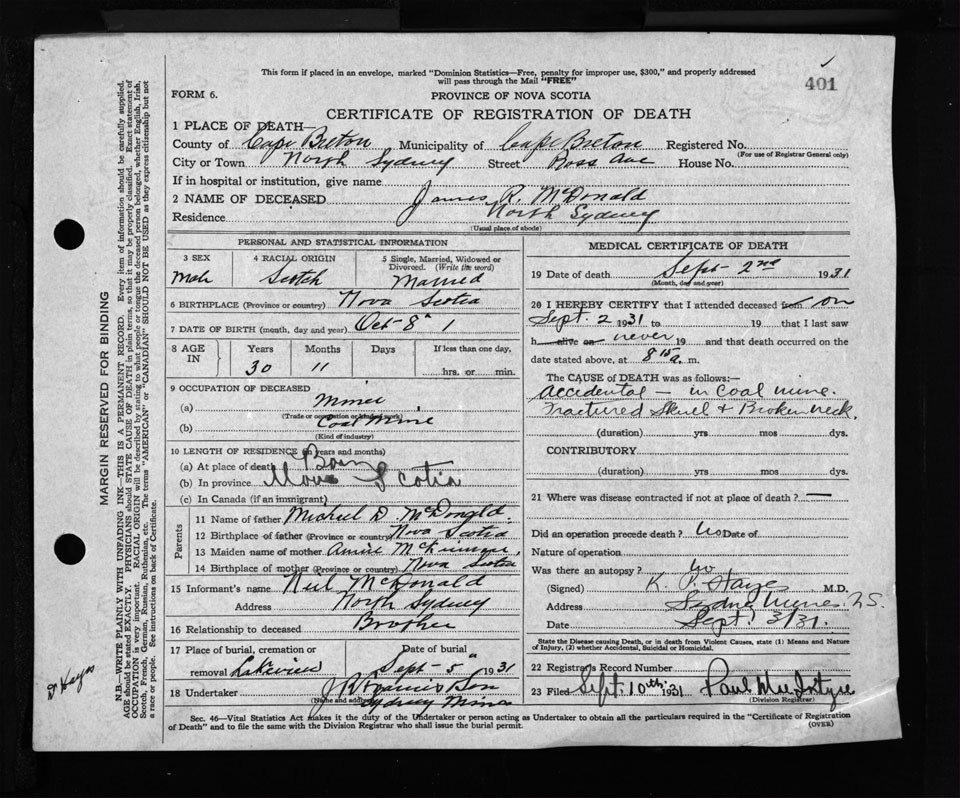 This form if placed in an envelope, marked "Dominion Statistics—Free, penalty for improper use, $300," and properly addressed
will pass through the Mail "FREE"
401
FORM 6.
PROVINCE OF NOVA SCOTIA
CERTIFICATE OF REGISTRATION OF DEATH
1 PLACE OF DEATH—
County of Cape Breton Municipality of Cape Breton Registered No.
(For use of Registrar General only)
City or Town North Sydney Street Ross Ave House No.
If in hospital or institution, give name
2 NAME OF DECEASED James R. McDonald
Residence North Sydney
(Usual place of abode)
PERSONAL AND STATISTICAL INFORMATION
3 SEX 4 RACIAL ORIGIN 5 Single, Married, Widowed or Divorced. (Write the word)
Male Scotch Married
6 BIRTHPLACE (Province or country) Nova Scotia
7 DATE OF BIRTH (month, day and year) Oct 8" 1
8 AGE IN Years Months Days If less than one day,
30 11 hrs. or min.
9 OCCUPATION OF DECEASED
(a) Miner
(Trade or occupation or kind of work)
(b) Coal Mine
(Kind of industry)
10 LENGTH OF RESIDENCE (in years and months)
(a) At place of death Born
(b) In province Nova Scotia
(c) In Canada (if an immigrant)
Parents
11 Name of father Michael D. McDonald.
12 Birthplace of father (Province or country) Nova Scotia
13 Maiden name of mother Annie
14 Birthplace of mother (Province or country) Nova Scotia
15 Informant's name Neil McDonald
Address North Sydney
16 Relationship to deceased Brother
17 Place of burial, cremation or removal Lakeview Date of burial Sept 5" 1931
18 Undertaker Son
(Name and address) Sydney Mines
MEDICAL CERTIFICATE OF DEATH
19 Date of death Sept 2nd 1931
(Month, day and year)
20 I HEREBY CERTIFY that I attended deceased from on
Sept. 2 1931 to 19 that I last saw
h alive on never 19 and that death occurred on the
date stated above, at 8 15 a. m.
The CAUSE of DEATH was as follows:—
Accidental — in Coal mine.
Fractured Skull & Broken neck.
(duration) yrs mos dys.
CONTRIBUTORY
(duration) yrs mos dys.
21 Where was disease contracted if not at place of death? —
Did an operation precede death? No Date of
Nature of operation
Was there an autopsy? No
(Signed) K. P. Hayes M.D.
Address Sydney Mines. N.S.
Date Sept. 3/31.
State the Disease causing Death, or in death from Violent Causes, state (1) Means and Nature of Injury, (2) whether Accidental, Suicidal or Homicidal.
22 Registrar's Record Number
23 Filed Sept. 10th. 1931 Paul MacIntyre
(Division Registrar)
Sec. 46—Vital Statistics Act makes it the duty of the Undertaker or person acting as Undertaker to obtain all the particulars required in the "Certificate of Registration
of Death" and to file the same with the Division Registrar who shall issue the burial permit.
(OVER)
MARGIN RESERVED FOR BINDING
N.B.—WRITE PLAINLY WITH UNFADING INK—THIS IS A PERMANENT RECORD. Every item of information should be carefully supplied.
AGE should be stated EXACTLY. PHYSICIANS should STATE CAUSE OF DEATH in plain terms, so that it may be properly classified. Exact statement of
OCCUPATION is very important. RACIAL ORIGIN will be described by stating to what people or tongue the deceased person belonged, whether English, Irish,
Scotch, French, German, Russian, Ruthenian, etc. The terms "AMERICAN" or "CANADIAN" SHOULD NOT BE USED as they express citizenship but not
a race or people. See instructions on back of Certificate.
Dr Hayes